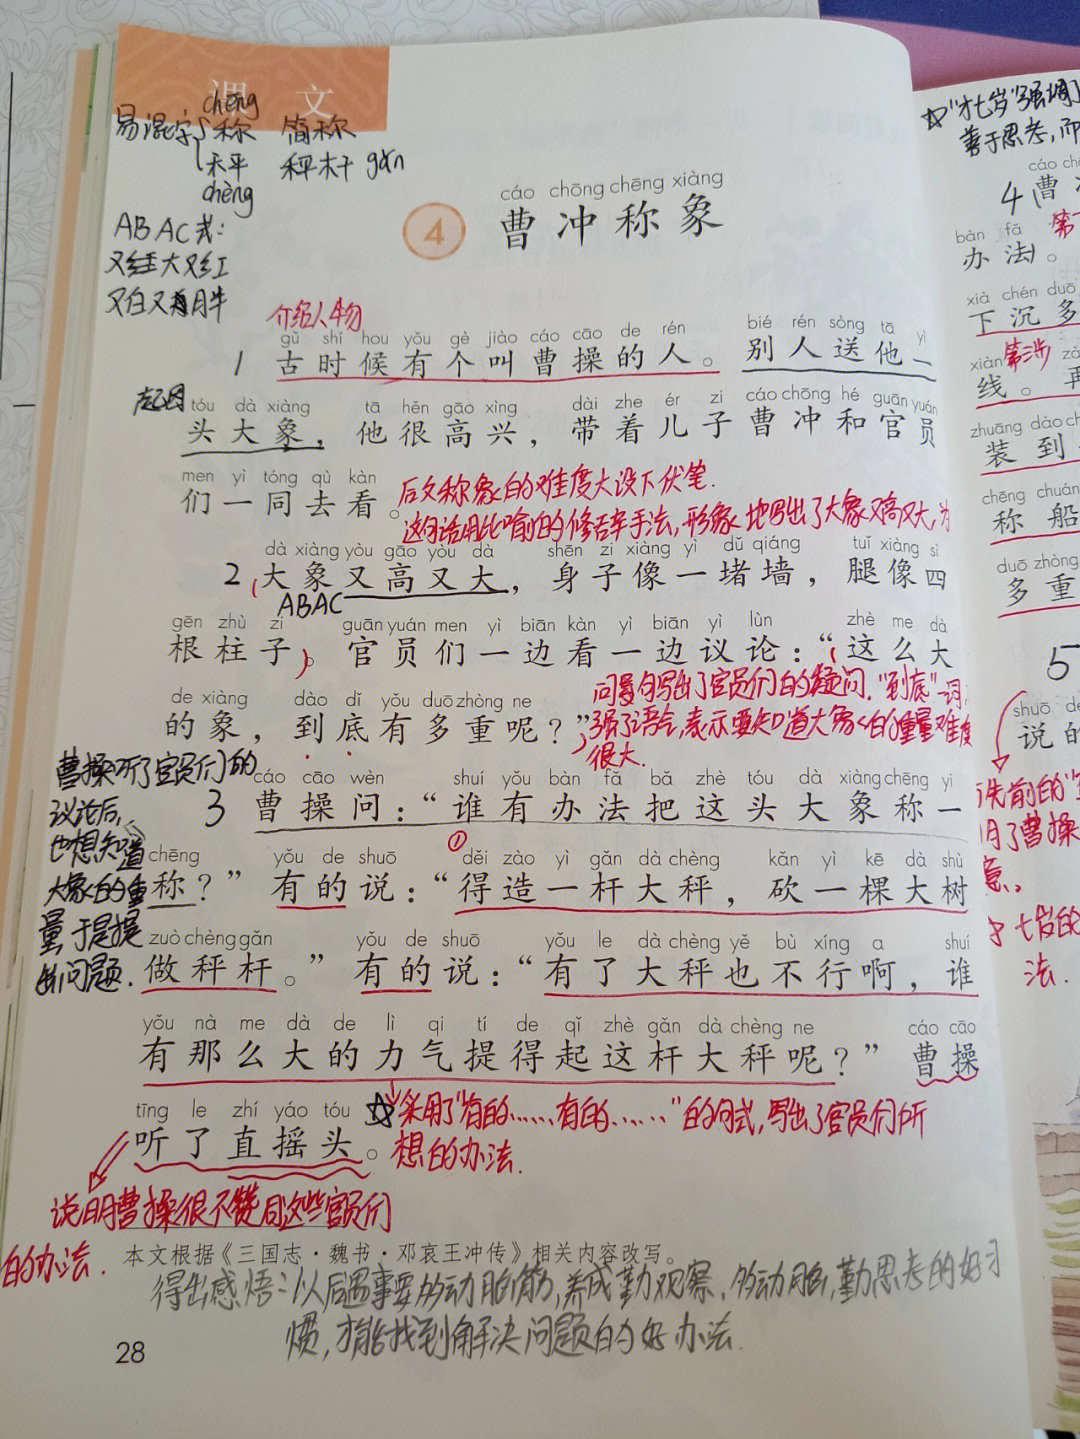 课 文
chēng
易混字 称 简称
秤 秤杆 gǎn
chèng
ABAC式：
又红又大又红
又白又胖
cáo chōng chēng xiàng
4 曹冲称象
介绍人物
gǔ shí hou yǒu gè jiào cáo cāo de rén bié rén sòng tā yì
1 古时候有个叫曹操的人。别人送他一
起因
tóu dà xiàng tā hěn gāo xìng dài zhe ér zi cáo chōng hé guān yuán
头大象，他很高兴，带着儿子曹冲和官员
men yì tóng qù kàn
们一同去看。
后文称象的难度大设下伏笔.
这句话用比喻的修辞手法，形象地写出了大象又高又大，为
dà xiàng yòu gāo yòu dà shēn zi xiàng yì dǔ qiáng tuǐ xiàng sì
2 大象又高又大，身子像一堵墙，腿像四
ABAC
gēn zhù zi guān yuán men yì biān kàn yì biān yì lùn zhè me dà
根柱子。官员们一边看一边议论：“这么大
de xiàng dào dǐ yǒu duō zhòng ne
的象，到底有多重呢？”
问号句写出了官员们的疑问.“到底”一词，
强了语气，表示要知道大象的重量难度
很大.
曹操听了官员们的
议论后，
也想知道
大象的重
量，于是提
出问题.
cáo cāo wèn shuí yǒu bàn fǎ bǎ zhè tóu dà xiàng chēng yi
3 曹操问：“谁有办法把这头大象称一
①
chēng yǒu de shuō děi zào yì gǎn dà chèng kǎn yì kē dà shù
称？”有的说：“得造一杆大秤，砍一棵大树
zuò chèng gǎn yǒu de shuō yǒu le dà chèng yě bù xíng a shuí
做秤杆。”有的说：“有了大秤也不行啊，谁
yǒu nà me dà de lì qi tí de qǐ zhè gǎn dà chèng ne cáo cāo
有那么大的力气提得起这杆大秤呢？”曹操
tīng le zhí yáo tóu
听了直摇头。
☆采用了“有的……有的……”的句式，写出了官员们所
想的办法.
说明曹操很不赞同这些官员们
的办法.
本文根据《三国志·魏书·邓哀王冲传》相关内容改写。
得出感悟：以后遇事要多动脑筋，养成勤观察，多动脑，勤思考的好习
惯，才能找到解决问题的好办法.
28
☆“才七岁”强调
善于思考，而
cáo
4 曹
bàn fǎ
办法。
xià chén duō
下沉多
第三步
xiàn
线。再
zhuāng dào
装到
chēng chuán
称船
duō zhòng
多重
5
shuō de
说的
先前的
明了曹操
意。
才七岁的
法.